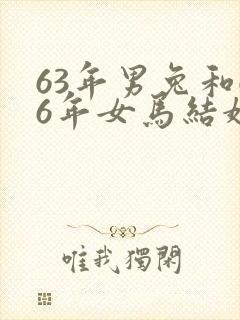 63年男兔和
6年女馬結
唯我獨閑